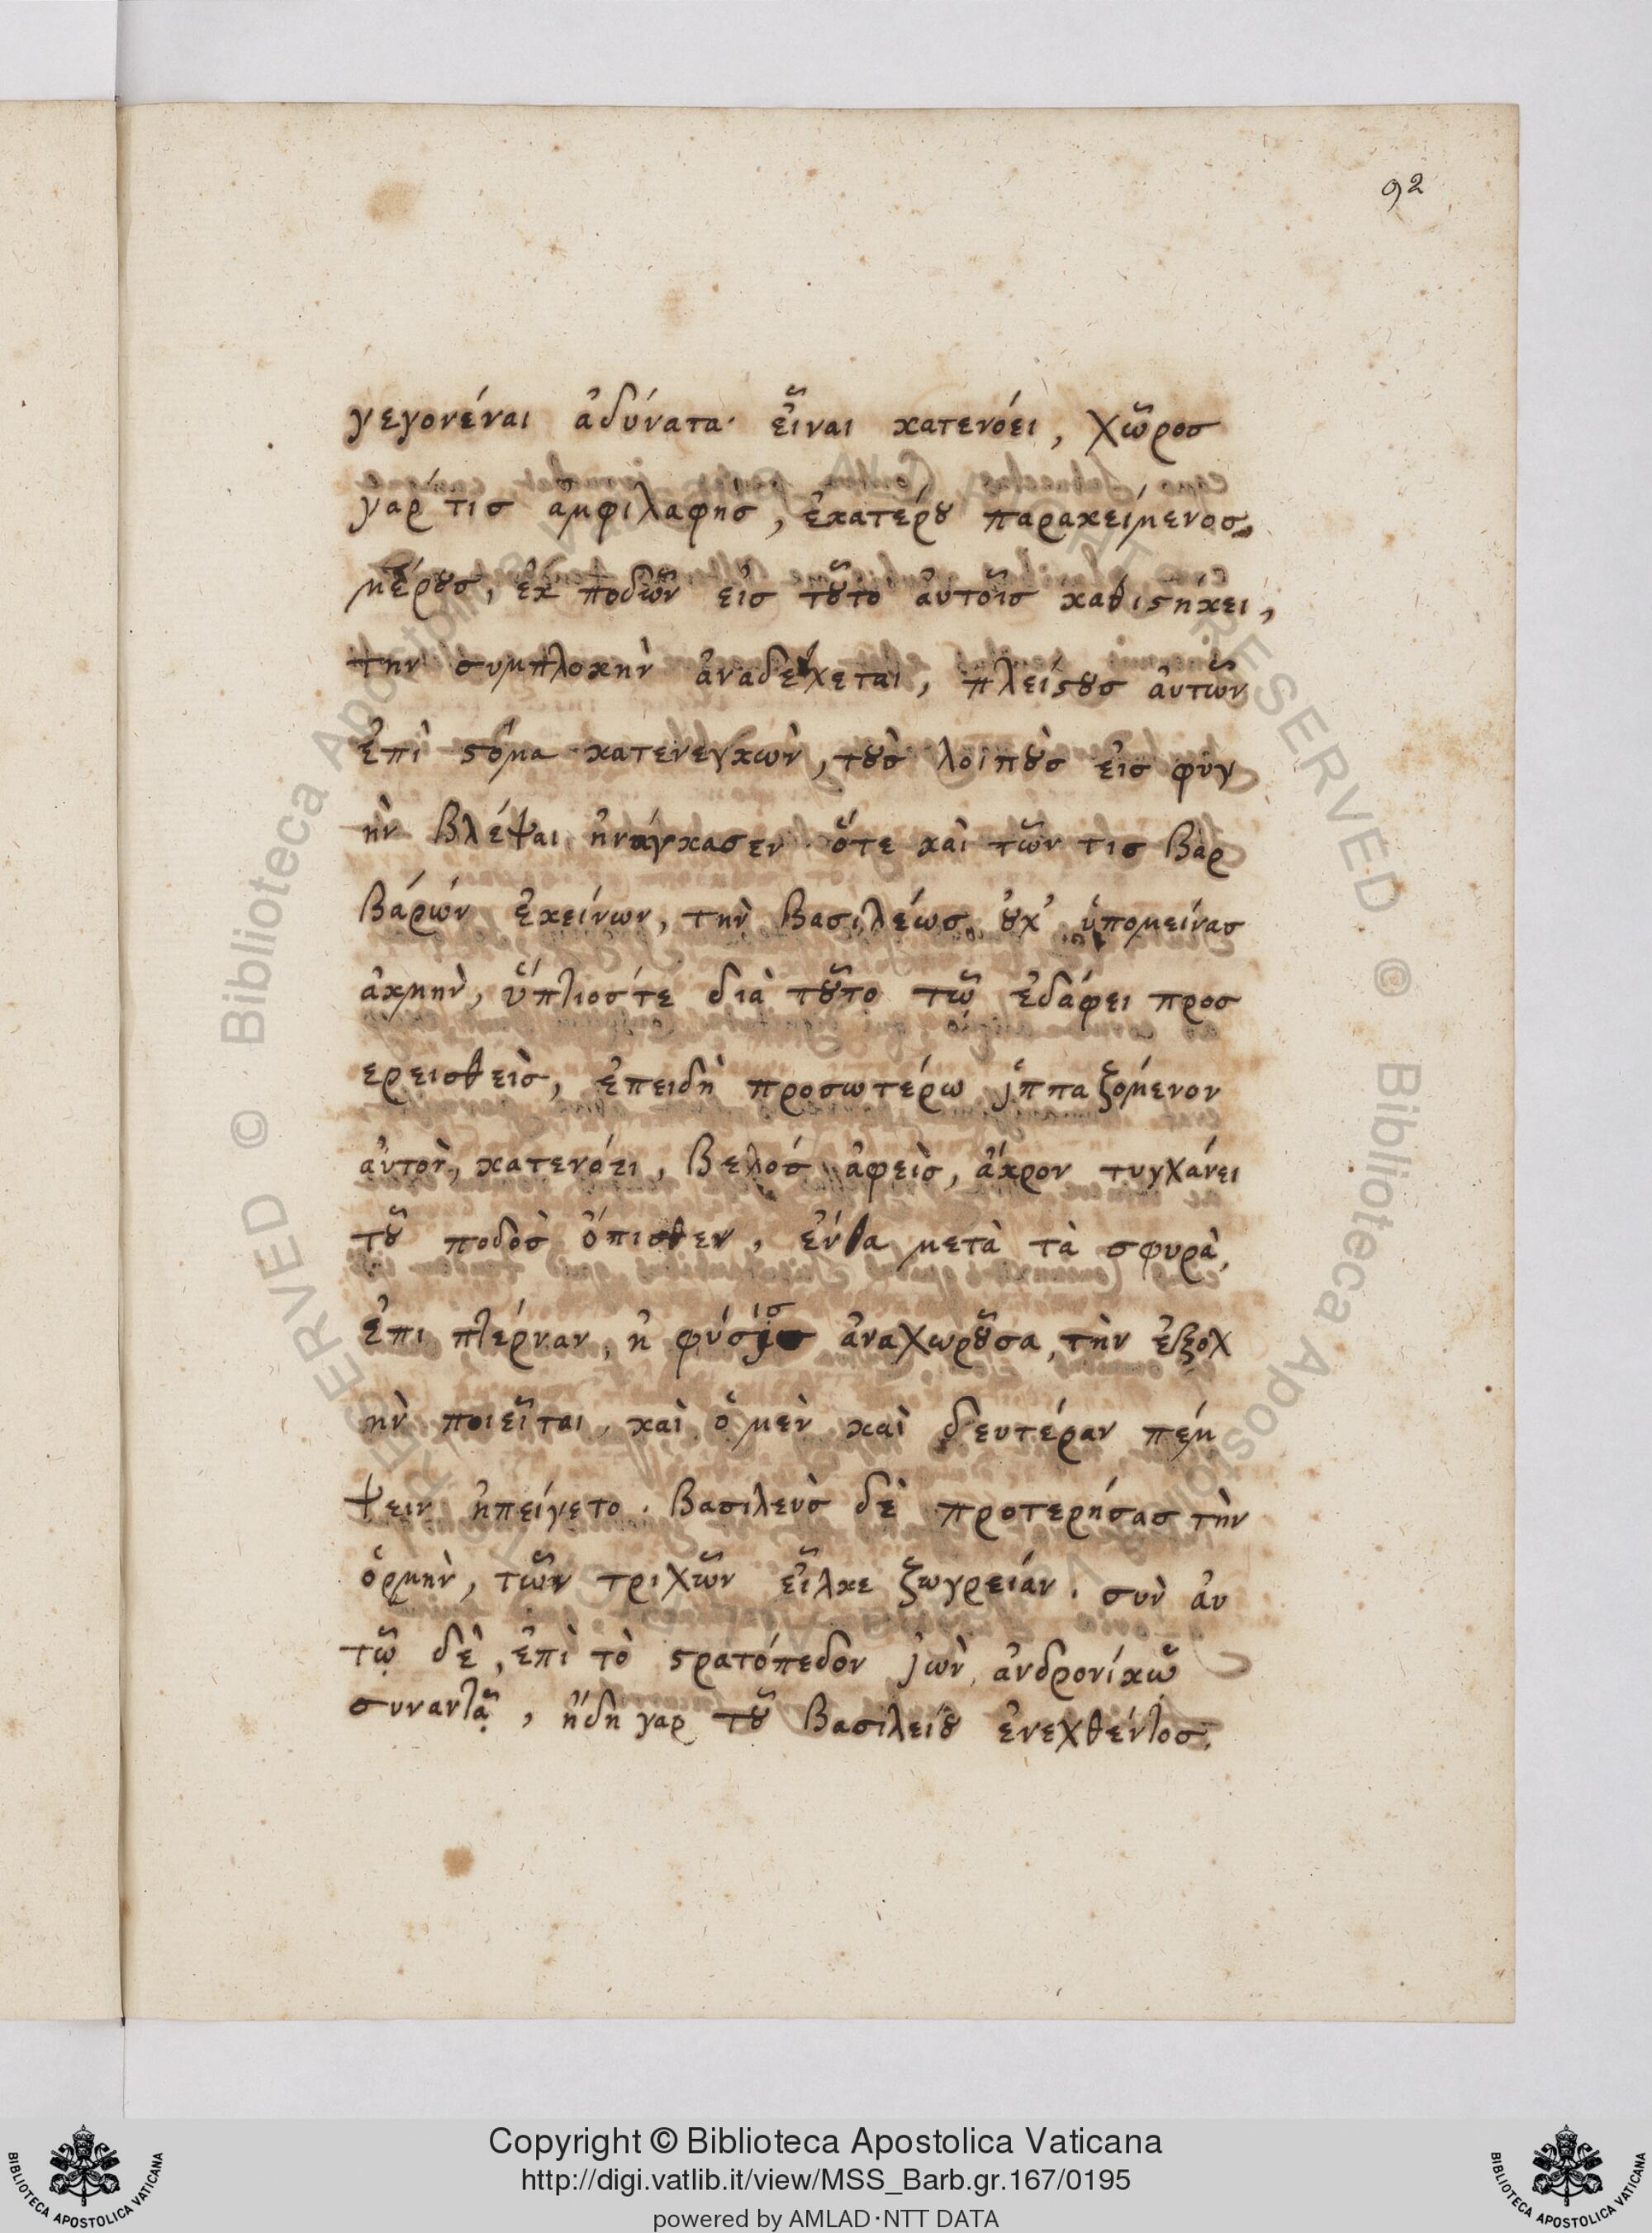 92
γεγονέναι ἀδύνατα· εἶναι κατενόει, χῶρος
γαρ τις ἀμφιλαφης, ἑκατέρȣ παρακείμενος,
μέρȣς, ἐκ ποδῶν εἰς τȣ͂το ἀυτοῖς καθιϛήκει,
την συμπλοκὴν ἀναδέχεται, πλείϛȣς ἀυτῶν
ἐπὶ ϛόμα κατενεγκὼν, τȣ̀ς λοιπȣ̀ς εἰς φυγ
ὴν βλέψαι ἠνάγκασεν. ὅτε καὶ τῶν τις Βαρ
βάρων ἐκείνων, την Βασιλέως ȣ̓χ' ὑπομείνας
ἀκμὴν, ὕπτιοστε διὰ τȣ͂το τῷ ἐδάφει προσ
ερεισθεὶς, ἐπειδὴ προσωτέρω ἱππαζομένον
ἀυτὸν, κατενόει, Βελός ἀφεὶς, ἄκρον τυγχάνει
τȣ͂ ποδὸς ὄπισθεν, ἐνθα μετὰ τὰ σφυρὰ,
ἐπι πτέρναν, ἡ φύσις ἀναχωρȣ͂σα, τὴν ἐξοχ
ὴν ποιεῖται, καὶ ὁ μὲν καὶ δευτέραν πέμ
ψειν ἠπείγετο. Βασιλεὺς δὲ προτερήσας τὴν
ὁρμὴν, τῶν τριχῶν εἶλκε ζωγρείαν. συν ἀυ
τῷ δὲ, ἐπὶ τὸ ϛρατόπεδον ἰὼν ἀνδρονίκῳ
συναντᾷ, ἤδη γαρ τȣ͂ Βασιλείȣ ἐνεχθέντος.
Copyright © Biblioteca Apostolica Vaticana
http://digi.vatlib.it/view/MSS_Barb.gr.167/0195
powered by AMLAD·NTT DATA
BIBLIOTECA APOSTOLICA VATICANA
BIBLIOTECA APOSTOLICA VATICANA